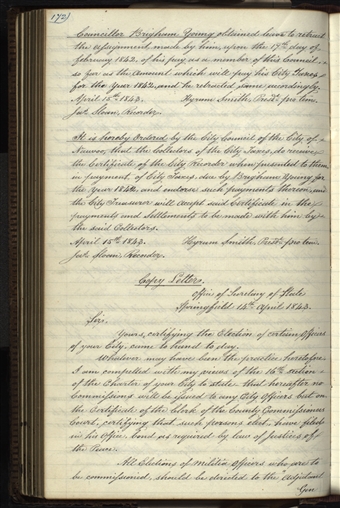 172)
Councillor Brigham Young obtained leave to retract
the assignment made by him, upon the 17th day of
February 1842, of his pay as a member of this Council
so far as the Amount which will pay his City Taxes
for the Year 1842, and he retracted same accordingly.
April 15th 1843. Hyrum Smith, Prest. pro tem.
Jas. Sloan, Recorder.
It is hereby Ordered by the City Council of the City of
Nauvoo, that the Collectors of the City Taxes, do receive
the Certificate of the City Recorder when presented to them
in payment of City Taxes due by Brigham Young for
the Year 1842, and endorse such payments thereon, and
the City Treasurer will accept said Certificate in the
payments and Settlements to be made with him by
the said Collectors.
April 15th 1843. Hyrum Smith, Prest. pro tem.
Jas. Sloan, Recorder.
Copy Letters.
Office of Secretary of State
Springfield 14th April 1843.
Sir.
Yours, certifying the Election of certain Officers
of your City, came to hand to day.
Whatever may have been the practice heretofore
I am compelled with my views of the 16th section
of the Charter of your City to state that hereafter no
Commissions will be issued to any City Officers but on
the Certificate of the Clerk of the County Commissioners
Court, certifying that such persons elect, have filed
in his Office bond as required by law of justices of
the Peace.
All Elections of Militia Officers who are to
be commissioned, should be directed to the Adjutant
Gen